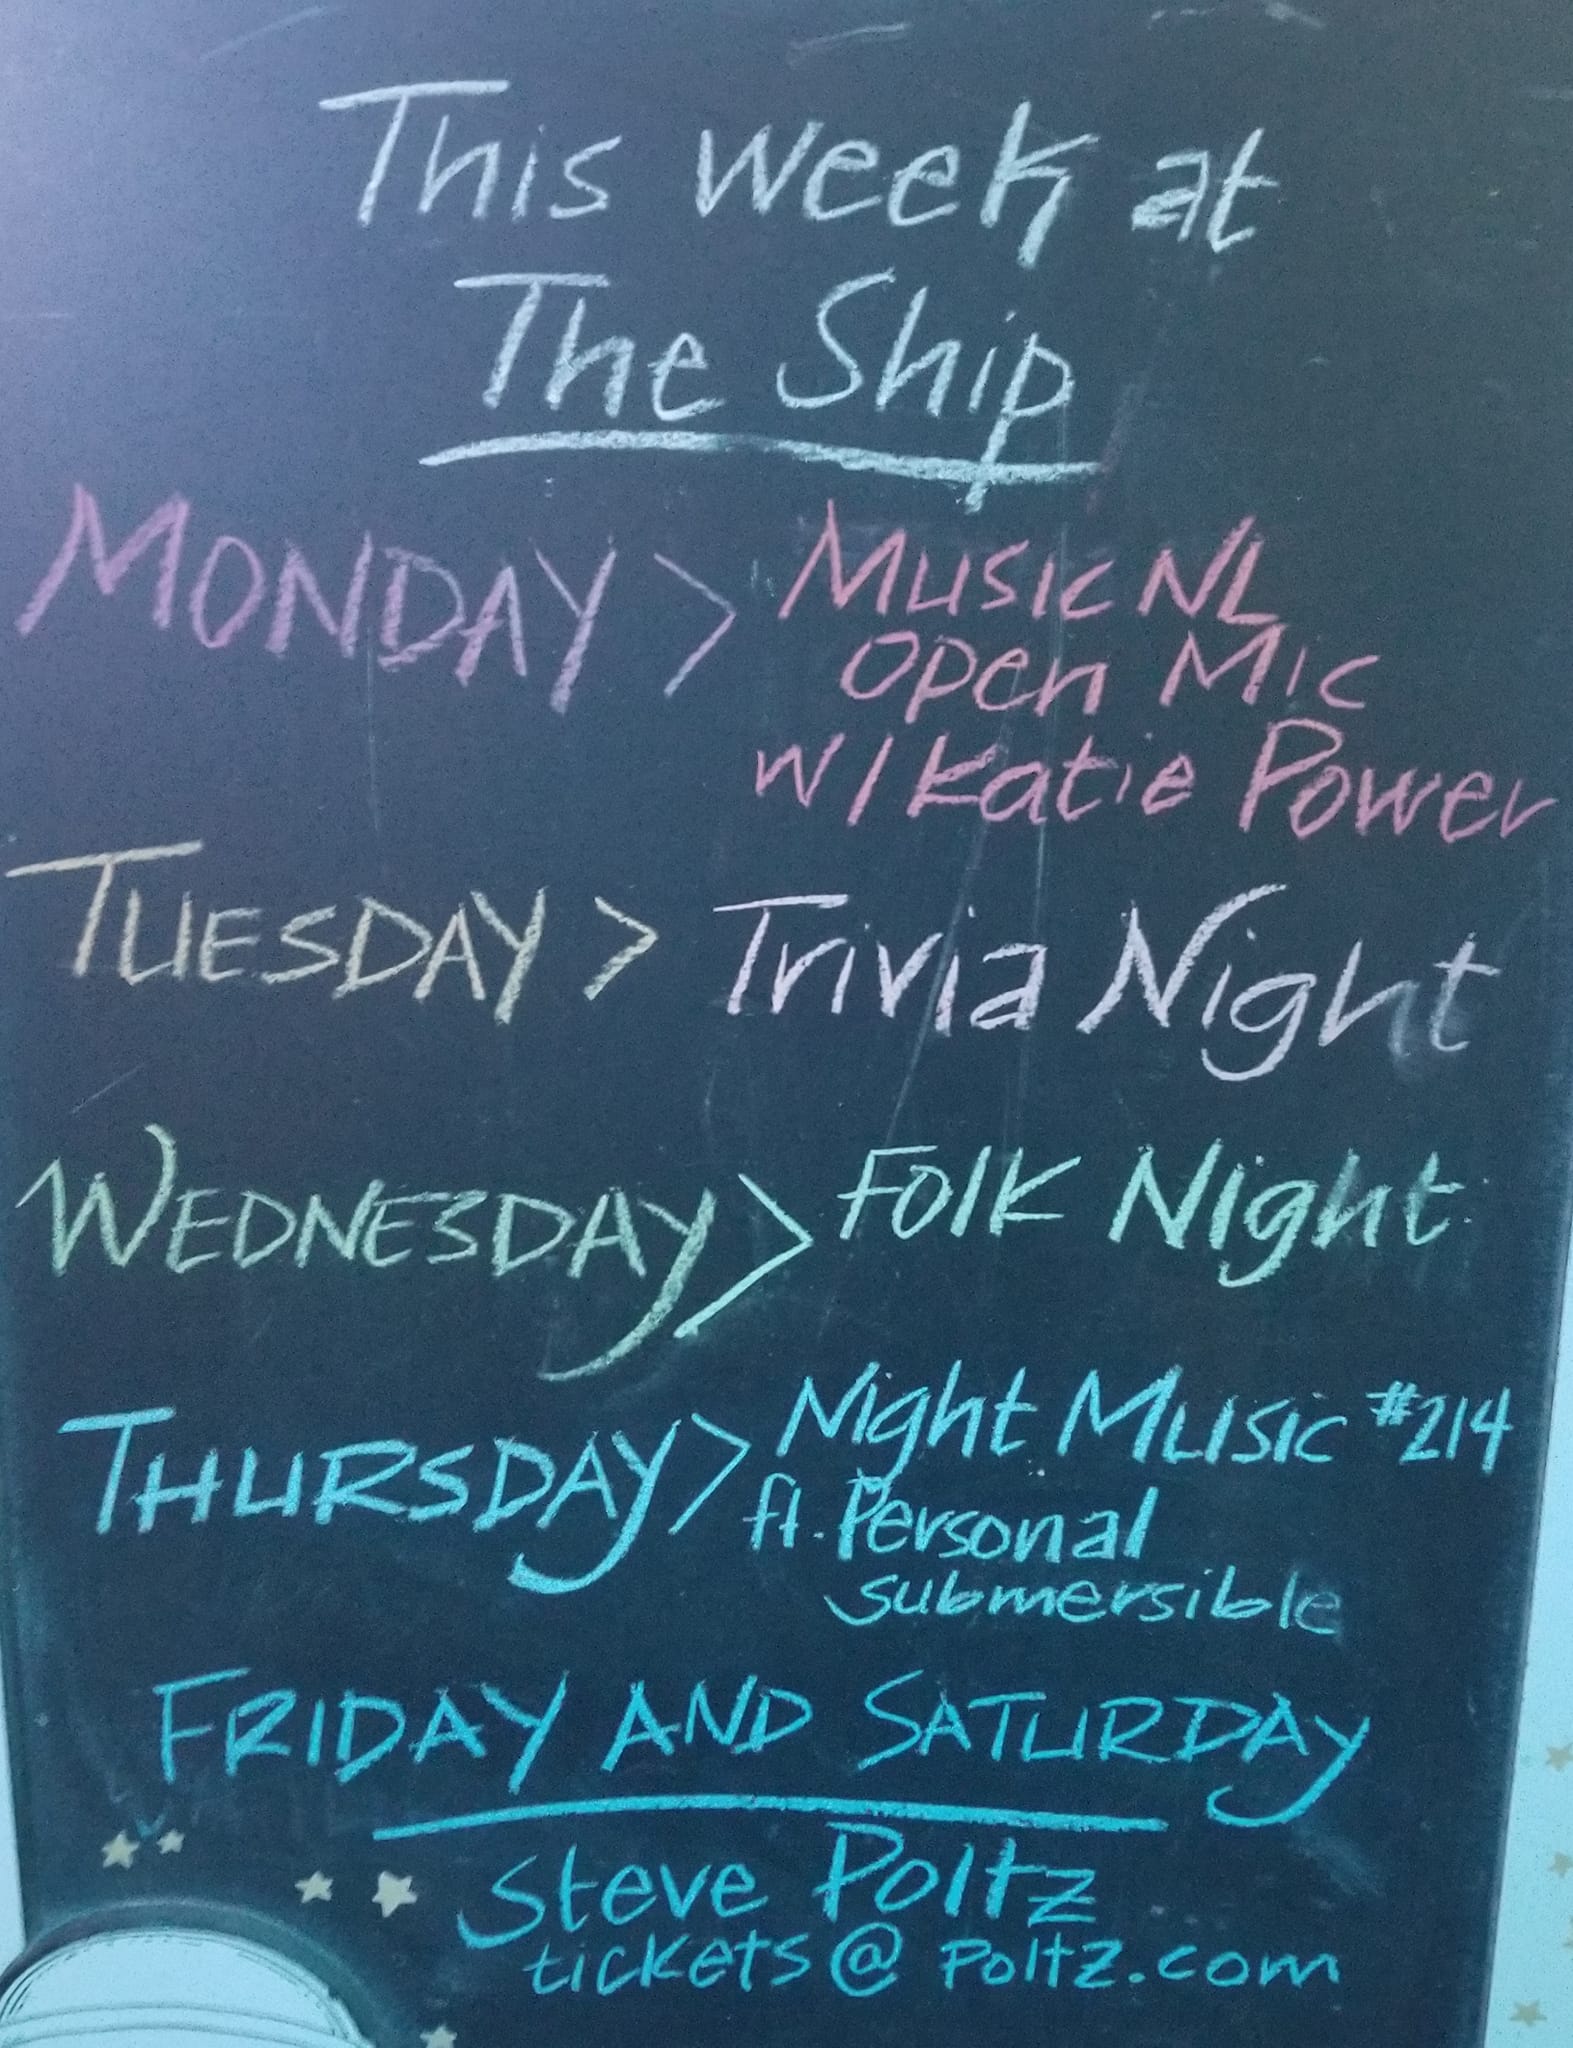 This week at
The Ship
MONDAY > MUSIC NL
Open Mic
w/ Katie Power
TUESDAY > Trivia Night
WEDNESDAY > Folk Night
THURSDAY > Night Music #214
ft. Personal
submersible
FRIDAY AND SATURDAY
Steve Poltz
tickets @ Poltz.com